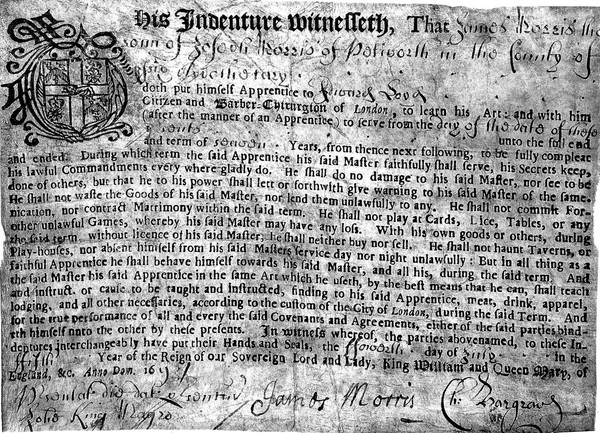 This Indenture Witnesseth, That James Morris the
son of Joseph Morris of Petworth in the County of
doth put himself Apprentice to Edward
Citizen and Barber-Chirurgion of London, to learn his Art: and with him
(after the manner of an Apprentice) to serve from the day of the date of these
unto the full end
and term of seaven Years, from thence next following, to be fully compleat
and ended. During which term the said Apprentice his said Master faithfully shall serve, his Secrets keep,
his lawful Commandments every where gladly do. He shall do no damage to his said Master, nor see to be
done of others, but that he to his power shall lett or forthwith give warning to his said Master of the same.
He shall not waste the Goods of his said Master, nor lend them unlawfully to any. He shall not commit For-
nication, nor contract Matrimony within the said term. He shall not play at Cards, Dice, Tables, or any
other unlawful Games, whereby his said Master may have any loss. With his own goods or others, during
the said term, without licence of his said Master, he shall neither buy nor sell. He shall not haunt Taverns, or
Play-houses, nor absent himself from his said Masters service day nor night unlawfully: But in all thing as a
faithful Apprentice he shall behave himself towards his said Master, and all his, during the said term And
the said Master his said Apprentice in the same Art which he useth, by the best means that he can, shall teach
and instruct, or cause to be taught and instructed, finding to his said Apprentice, meat, drink, apparel,
lodging, and all other necessaries, according to the custom of the City of London, during the said Term. And
for the true performance of all and every the said Covenants and Agreements, either of the said parties bind-
eth himself unto the other by these presents. In witness whereof, the parties abovenamed, to these In-
dentures interchangeably have put their Hands and Seals, the day of July in the
Year of the Reign of our Sovereign Lord and Lady, King William and Queen Mary, of
England, &c. Anno Dom. 169
James Morris
John King